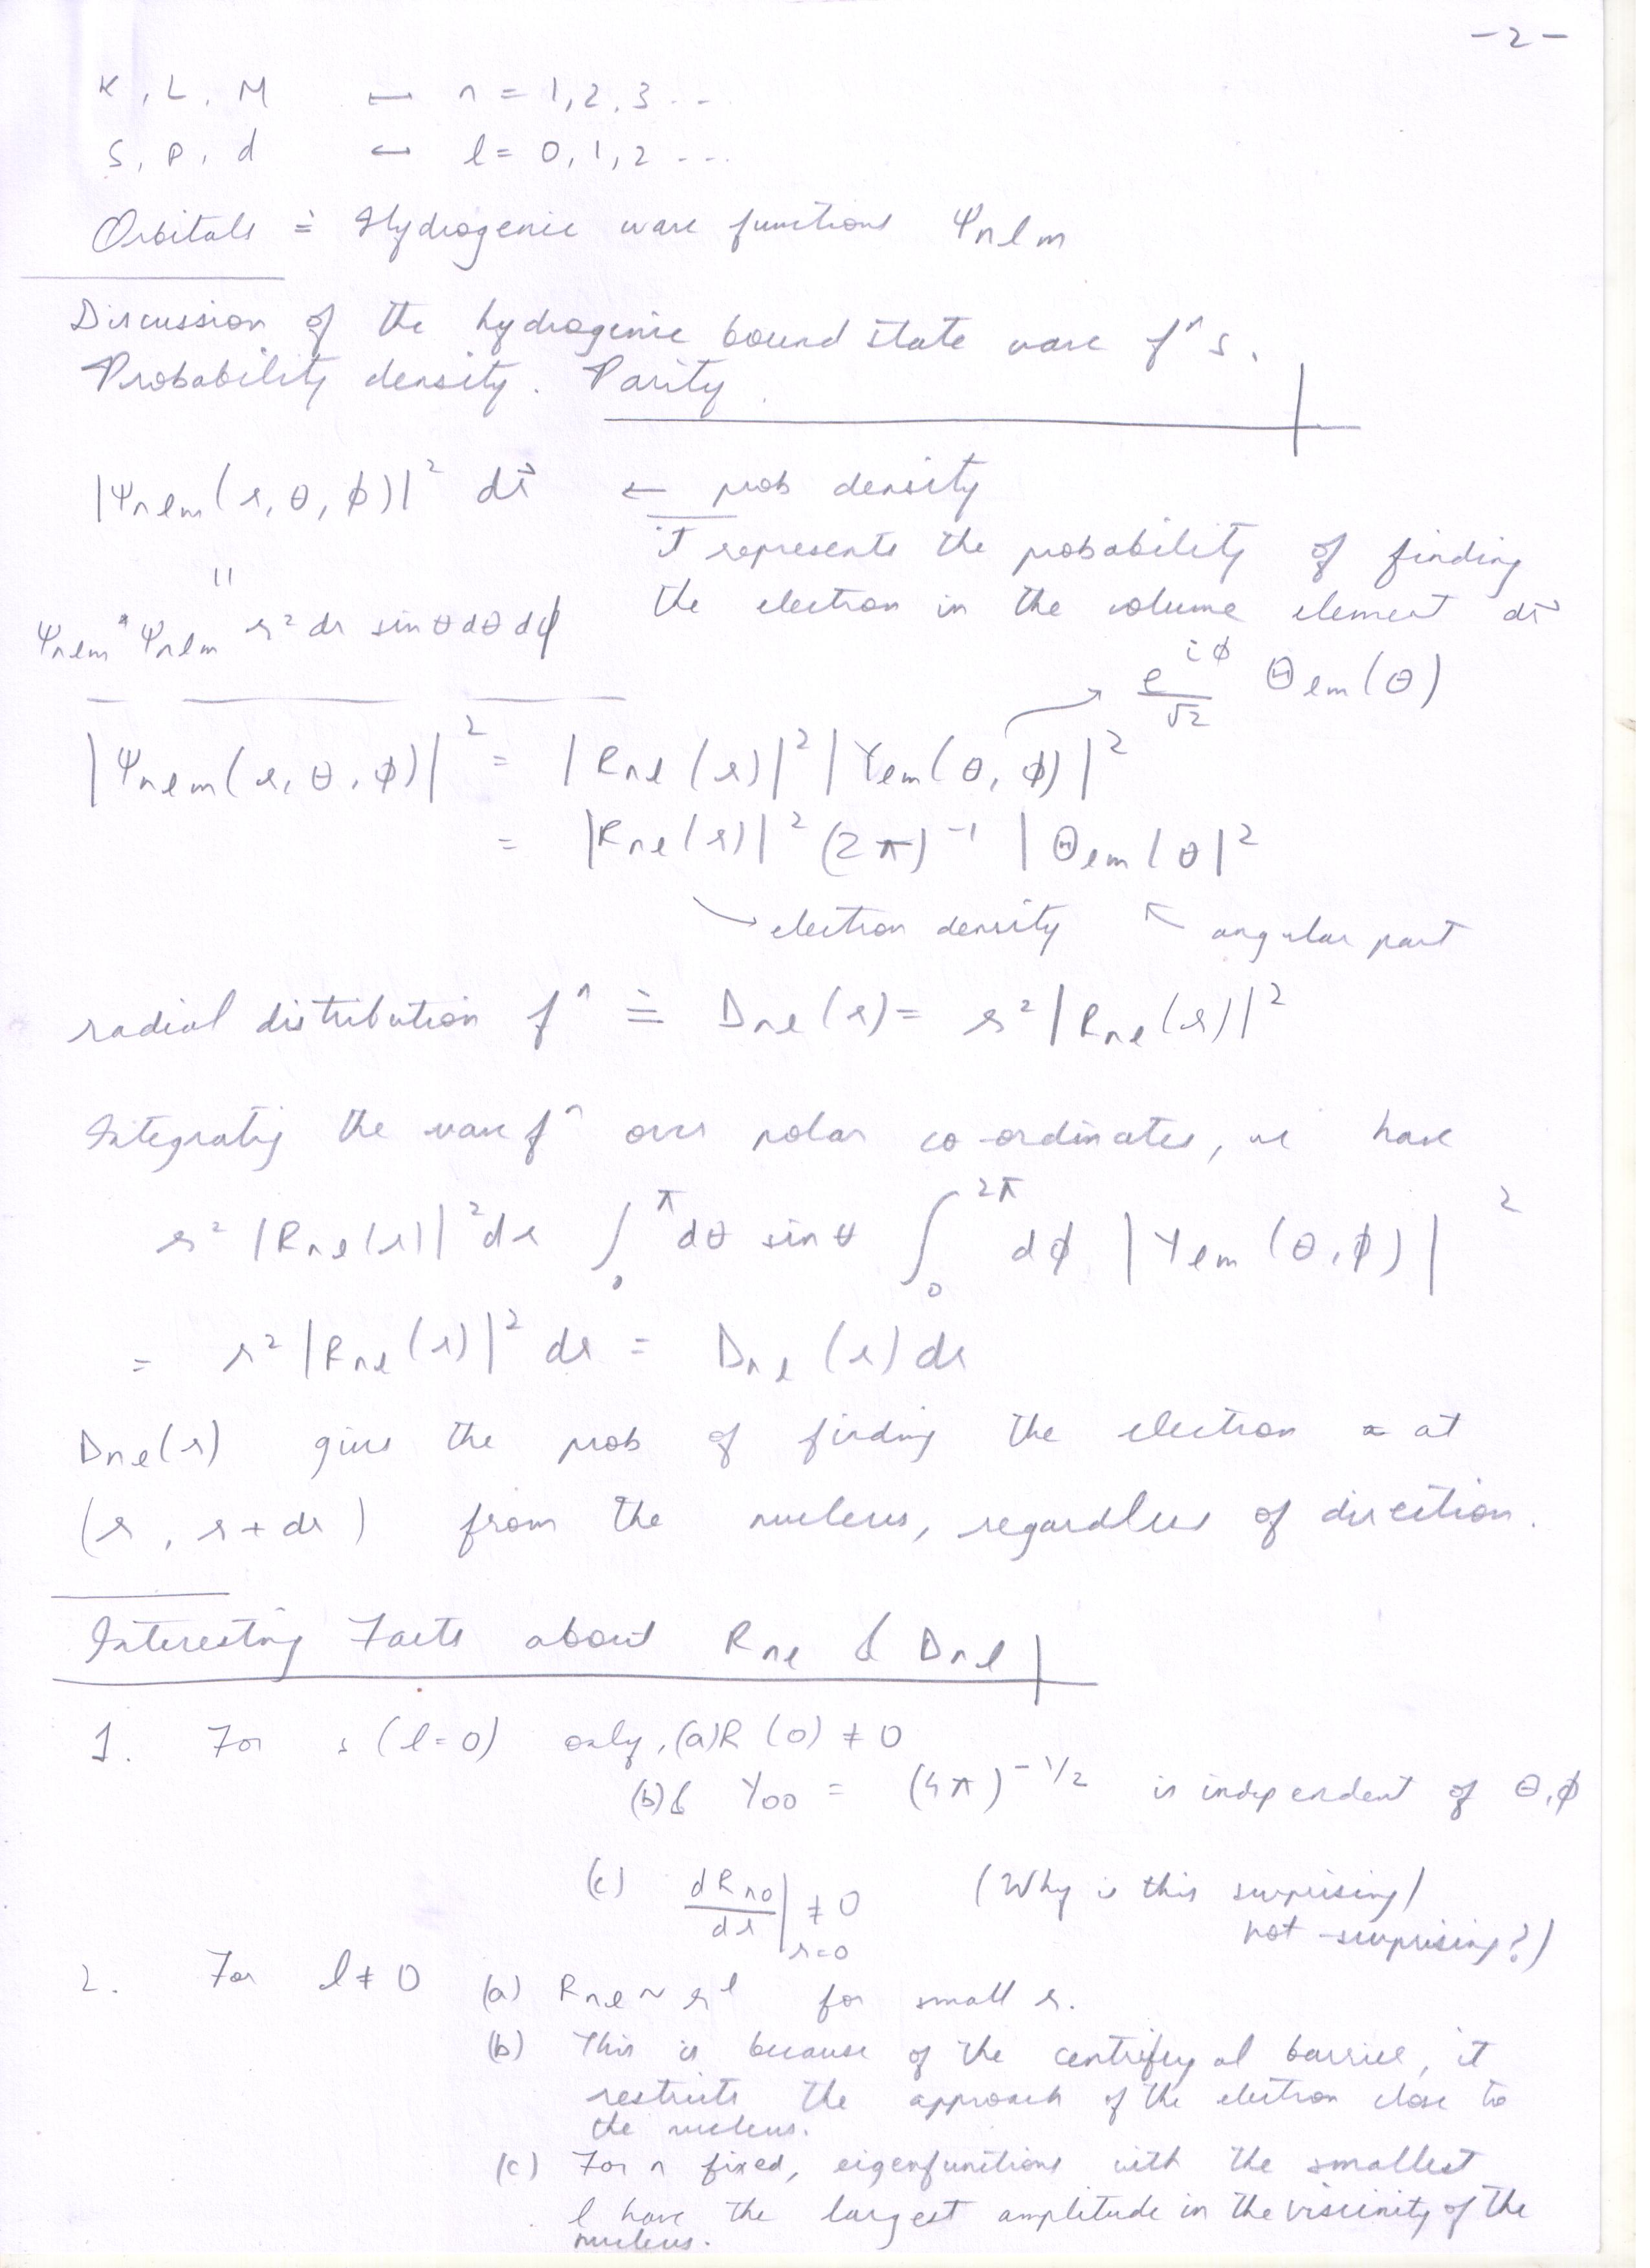 -2-
K, L, M ↔ n = 1,2,3...
s, p, d ↔ l = 0,1,2...
Orbitals ≐ Hydrogenic wave functions Ψnlm
Discussion of the hydrogenic bound state wave fⁿs.
Probability density. Parity
|Ψnlm(r,θ,φ)|² dr⃗ ← prob density
it represents the probability of finding
the electron in the volume element dr⃗
||
Ψnlm* Ψnlm r² dr sinθ dθ dφ
→ e^{iφ}/√2 Θlm(θ)
|Ψnlm(r,θ,φ)|² = |Rnl(r)|² |Ylm(θ,φ)|²
= |Rnl(r)|² (2π)⁻¹ |Θlm(θ|²
→ electron density ↖ angular part
radial distribution fⁿ ≐ Dnl(r) = r² |Rnl(r)|²
Integratig the wave fⁿ over polar co-ordinates, we have
r² |Rnl(r)|² dr ∫₀^π dθ sinθ ∫₀^{2π} dφ |Ylm(θ,φ)|²
= r² |Rnl(r)|² dr = Dnl(r) dr
Dnl(r) gives the prob of finding the electron at
(r, r+dr) from the nucleus, regardless of direction.
Interesting Facts about Rnl & Dnl
1. For s (l=0) only, (a) R(0) ≠ 0
(b) & Y00 = (4π)^{-1/2} is independent of θ,φ
(c) dRn0/dr|r=0 ≠ 0 (Why is this surprising/
not-surprising?)
2. For l ≠ 0 (a) Rnl ~ r^l for small r.
(b) This is because of the centrifugal barrier, it
restricts the approach of the electron close to
the nucleus.
(c) For n fixed, eigenfunctions with the smallest
l have the largest amplitude in the viscinity of the
nucleus.